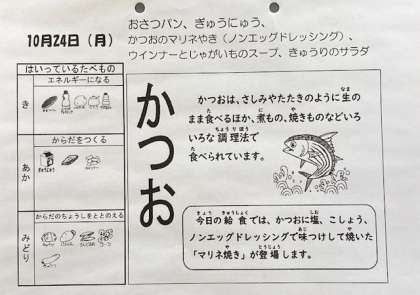 10月24日（月）
おさつパン、ぎゅうにゅう、
かつおのマリネやき（ノンエッグドレッシング）、
ウインナーとじゃがいものスープ、きゅうりのサラダ
はいっているたべもの
エネルギーになる
き
からだをつくる
あか
からだのちょうしをととのえる
みどり
かつお
かつおは、さしみやたたきのように生の
まま食べるほか、煮もの、焼きものなどいろ
いろな調理法で
食べられています。
今日の給食では、かつおに塩、こしょう、
ノンエッグドレッシングで味つけして焼いた
「マリネ焼き」が登場します。